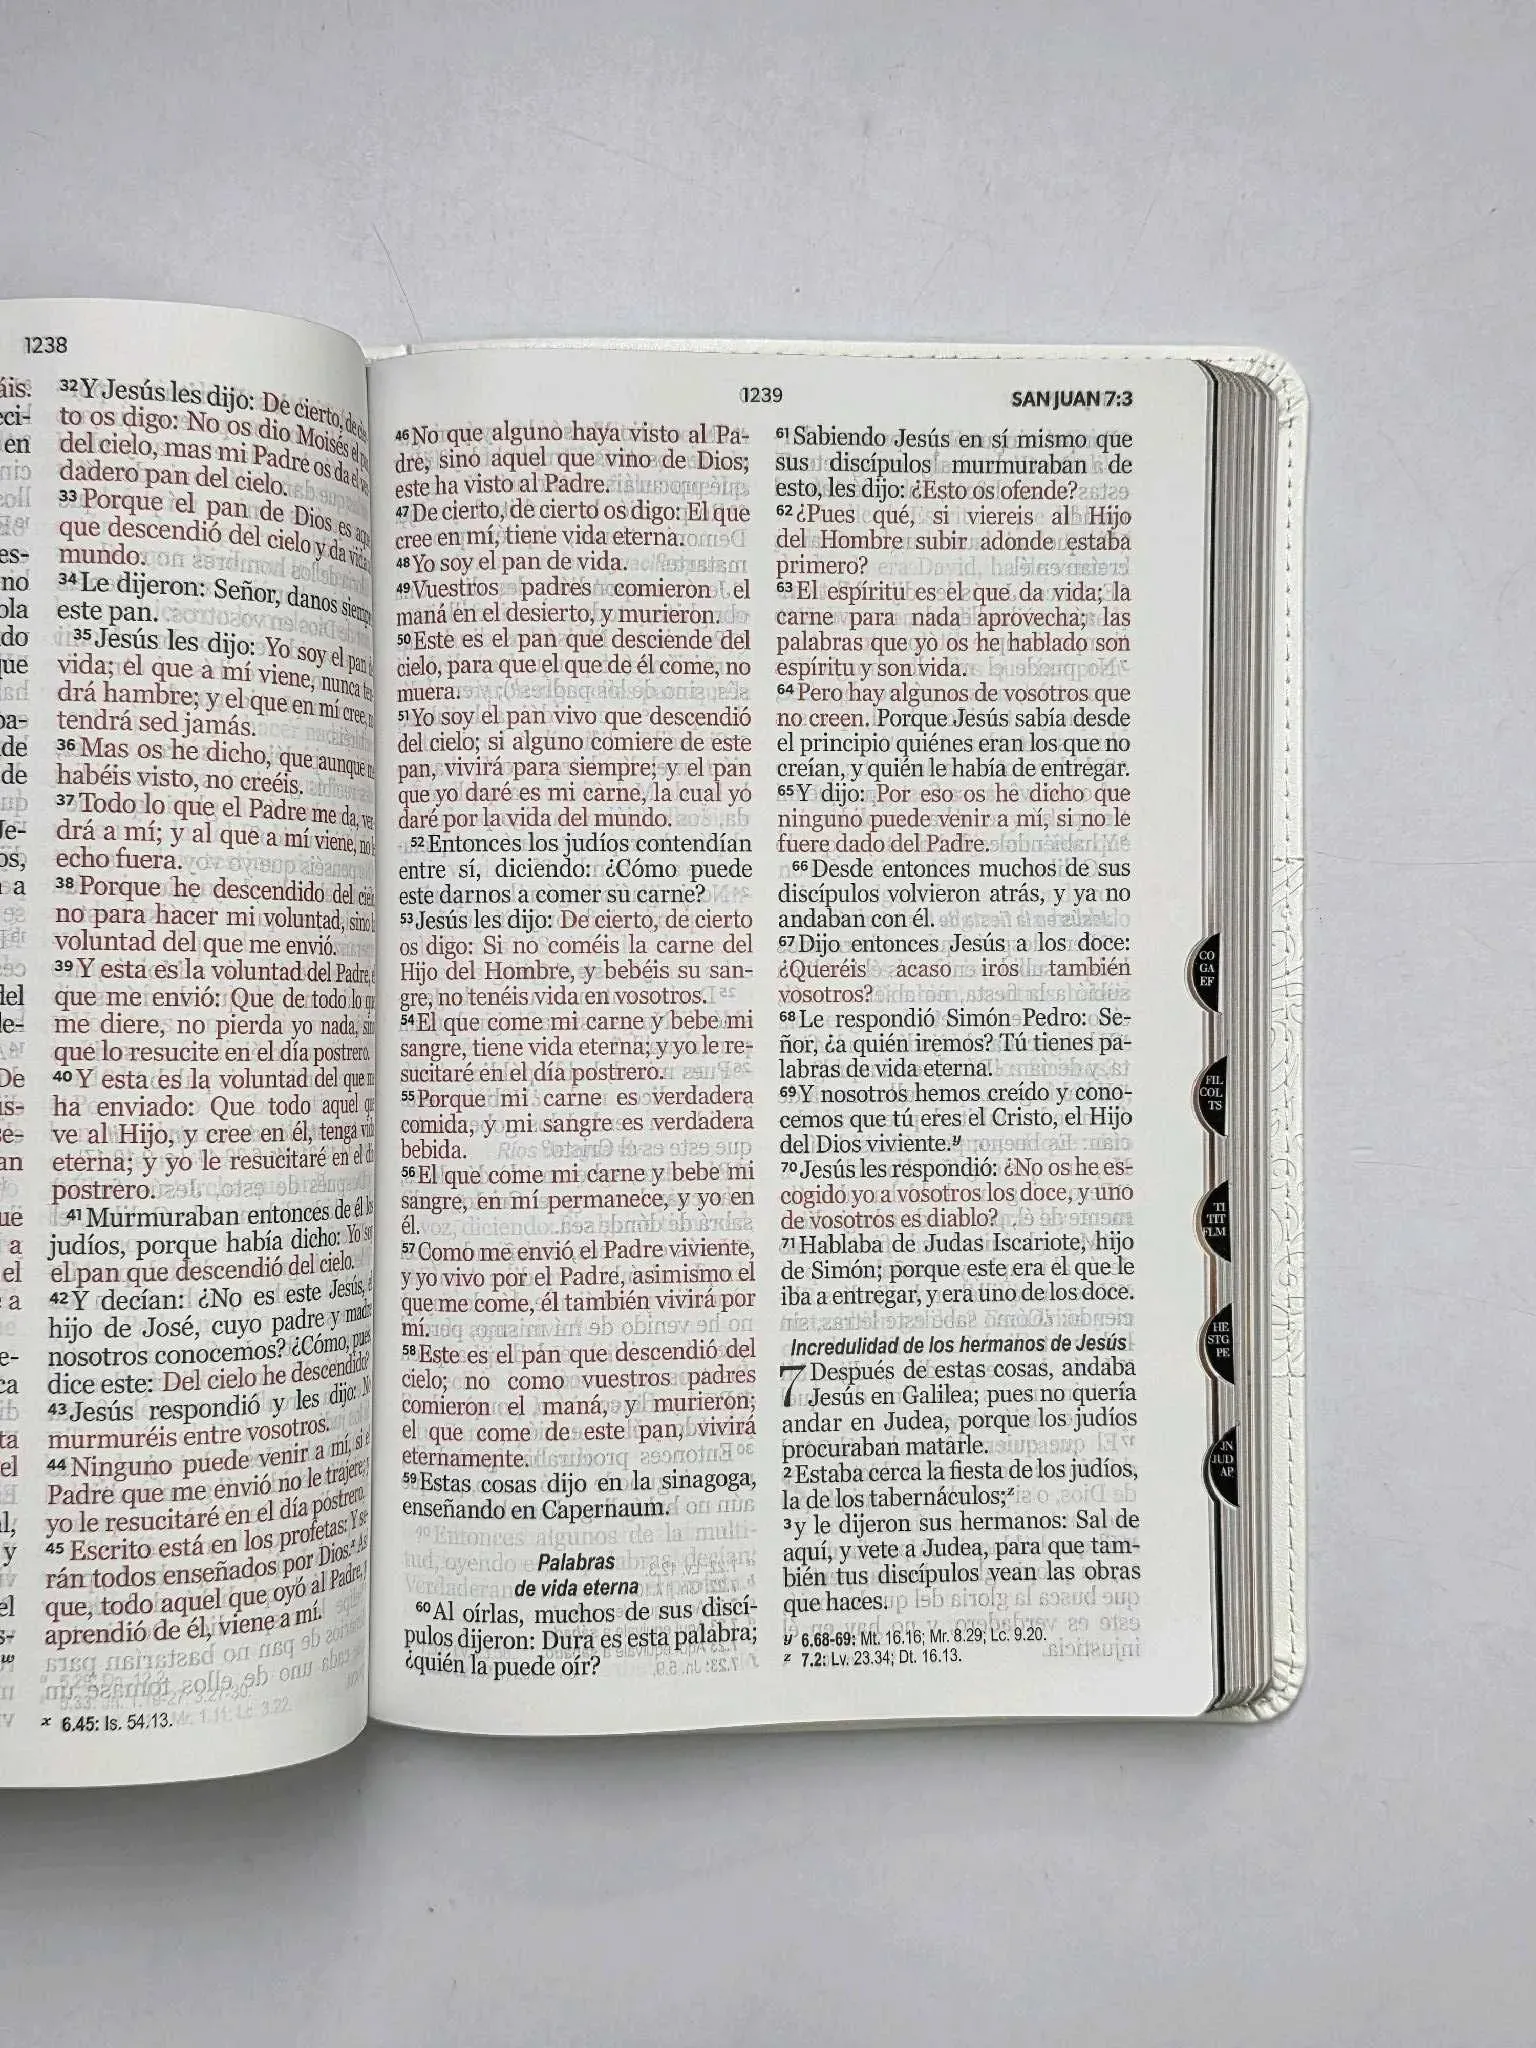 1238
áis.
eci-
en
es-
no
ola
do
que
ba-
de
de
Je-
os,
a
del
le-
De
is-
se-
an
que
a
el
a
e-
ca
ta
el
al,
y
el
s-
w
32 Y Jesús les dijo: De cierto, de
to os digo: No os dio Moisés el
del cielo, mas mi Padre os da el
dadero pan del cielo.
33 Porque el pan de Dios es
que descendió del cielo y da vida
mundo.
34 Le dijeron: Señor, danos
este pan.
35 Jesús les dijo: Yo soy el pan
vida; el que a mí viene, nunca
drá hambre; y el que en mí cree,
tendrá sed jamás.
36 Mas os he dicho, que aunque
habéis visto, no creéis.
37 Todo lo que el Padre me da,
drá a mí; y al que a mí viene, no
echo fuera.
38 Porque he descendido del
no para hacer mi voluntad, sino
voluntad del que me envió.
39 Y esta es la voluntad del Padre,
que me envió: Que de todo lo
me diere, no pierda yo nada,
que lo resucite en el día postrero.
40 Y esta es la voluntad del que
ha enviado: Que todo aquel
ve al Hijo, y cree en él, tenga
eterna; y yo le resucitaré en el
postrero.
41 Murmuraban entonces de él
judíos, porque había dicho: Yo
el pan que descendió del cielo.
42 Y decían: ¿No es este Jesús,
hijo de José, cuyo padre y madre
nosotros conocemos? ¿Cómo, pues
dice este: Del cielo he descendido?
43 Jesús respondió y les dijo: No
murmuréis entre vosotros.
44 Ninguno puede venir a mí, si el
Padre que me envió no le trajere; y
yo le resucitaré en el día postrero.
45 Escrito está en los profetas: Y se-
rán todos enseñados por Dios.x Así
que, todo aquel que oyó al Padre, y
aprendió de él, viene a mí.
x 6.45: Is. 54.13.
1239
SAN JUAN 7:3
46 No que alguno haya visto al Pa-
dre, sino aquel que vino de Dios;
este ha visto al Padre.
47 De cierto, de cierto os digo: El que
cree en mí, tiene vida eterna.
48 Yo soy el pan de vida.
49 Vuestros padres comieron el
maná en el desierto, y murieron.
50 Este es el pan que desciende del
cielo, para que el que de él come, no
muera.
51 Yo soy el pan vivo que descendió
del cielo; si alguno comiere de este
pan, vivirá para siempre; y el pan
que yo daré es mi carne, la cual yo
daré por la vida del mundo.
52 Entonces los judíos contendían
entre sí, diciendo: ¿Cómo puede
este darnos a comer su carne?
53 Jesús les dijo: De cierto, de cierto
os digo: Si no coméis la carne del
Hijo del Hombre, y bebéis su san-
gre, no tenéis vida en vosotros.
54 El que come mi carne y bebe mi
sangre, tiene vida eterna; y yo le re-
sucitaré en el día postrero.
55 Porque mi carne es verdadera
comida, y mi sangre es verdadera
bebida.
56 El que come mi carne y bebe mi
sangre, en mí permanece, y yo en
él.
57 Como me envió el Padre viviente,
y yo vivo por el Padre, asimismo el
que me come, él también vivirá por
mí.
58 Este es el pan que descendió del
cielo; no como vuestros padres
comieron el maná, y murieron;
el que come de este pan, vivirá
eternamente.
59 Estas cosas dijo en la sinagoga,
enseñando en Capernaum.
Palabras
de vida eterna
60 Al oírlas, muchos de sus discí-
pulos dijeron: Dura es esta palabra;
¿quién la puede oír?
61 Sabiendo Jesús en sí mismo que
sus discípulos murmuraban de
esto, les dijo: ¿Esto os ofende?
62 ¿Pues qué, si viereis al Hijo
del Hombre subir adonde estaba
primero?
63 El espíritu es el que da vida; la
carne para nada aprovecha; las
palabras que yo os he hablado son
espíritu y son vida.
64 Pero hay algunos de vosotros que
no creen. Porque Jesús sabía desde
el principio quiénes eran los que no
creían, y quién le había de entregar.
65 Y dijo: Por eso os he dicho que
ninguno puede venir a mí, si no le
fuere dado del Padre.
66 Desde entonces muchos de sus
discípulos volvieron atrás, y ya no
andaban con él.
67 Dijo entonces Jesús a los doce:
¿Queréis acaso iros también
vosotros?
68 Le respondió Simón Pedro: Se-
ñor, ¿a quién iremos? Tú tienes pa-
labras de vida eterna.
69 Y nosotros hemos creído y cono-
cemos que tú eres el Cristo, el Hijo
del Dios viviente.y
70 Jesús les respondió: ¿No os he es-
cogido yo a vosotros los doce, y uno
de vosotros es diablo?
71 Hablaba de Judas Iscariote, hijo
de Simón; porque este era el que le
iba a entregar, y era uno de los doce.
Incredulidad de los hermanos de Jesús
7 Después de estas cosas, andaba
Jesús en Galilea; pues no quería
andar en Judea, porque los judíos
procuraban matarle.
2 Estaba cerca la fiesta de los judíos,
la de los tabernáculos;z
3 y le dijeron sus hermanos: Sal de
aquí, y vete a Judea, para que tam-
bién tus discípulos vean las obras
que haces.
y 6.68-69: Mt. 16.16; Mr. 8.29; Lc. 9.20.
z 7.2: Lv. 23.34; Dt. 16.13.
CO
GA
EF
FIL
COL
TS
TI
TIT
FLM
HE
STG
PE
JN
JUD
AP